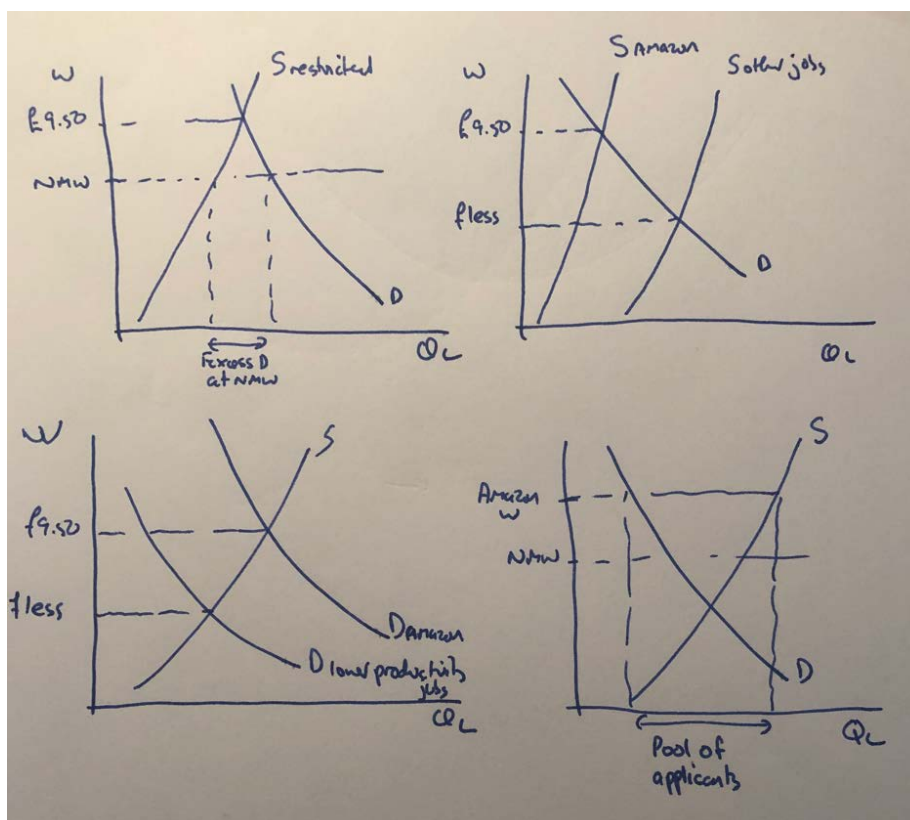 W
S restricted
£9.50
NMW
D
QL
Excess D
at NMW
W
S Amazon
S other jobs
£9.50
£less
D
QL
W
S
£9.50
£less
D Amazon
D lower productivity
jobs
QL
S
Amazon
W
NMW
D
QL
Pool of
applicants